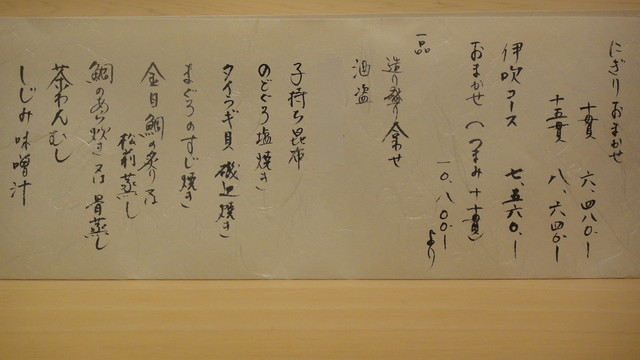 にぎりおまかせ
十貫 六、四八〇.ー
十五貫 八、六四〇.ー
伊吹コース 七、五六〇.ー
おまかせ（つまみ＋十貫）
一〇、八〇〇.ーより
一品
造り盛り合わせ
酒盗
子持ち昆布
のどぐろ塩焼き
タイラギ貝 磯辺焼き
まぐろのすじ焼き
金目鯛の炙り又は
松前蒸し
鯛のあら炊き又は骨蒸し
茶わんむし
しじみ味噌汁